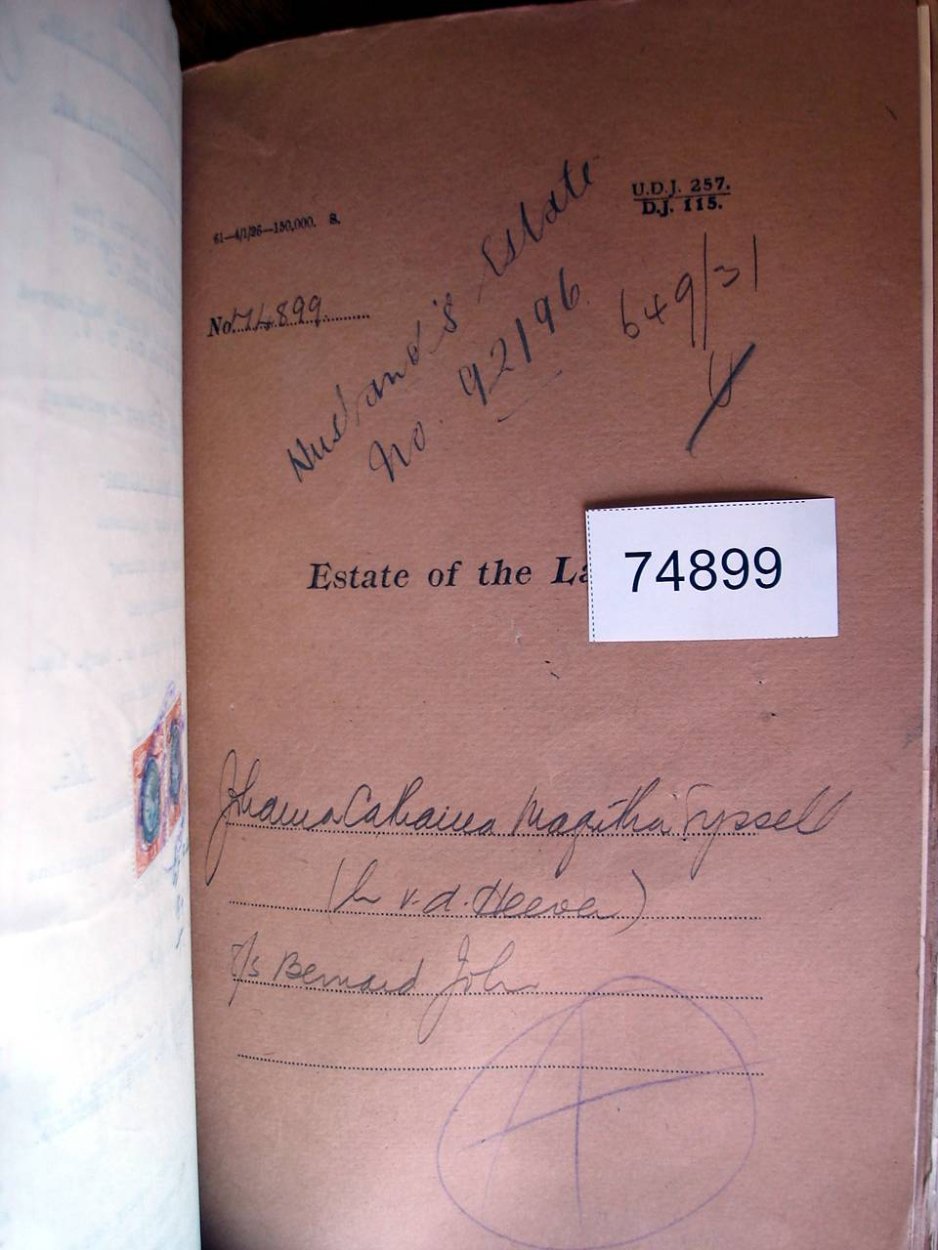 U.D.J. 257.
D.J. 115.
61—4/1/26—150,000. S.
No. 74899
Husband's Estate
No. 92196
649/31
Estate of the La
74899
Johanna Catharina Magritha Tyssell
v. d. Heever)
s/s Bernard John
A